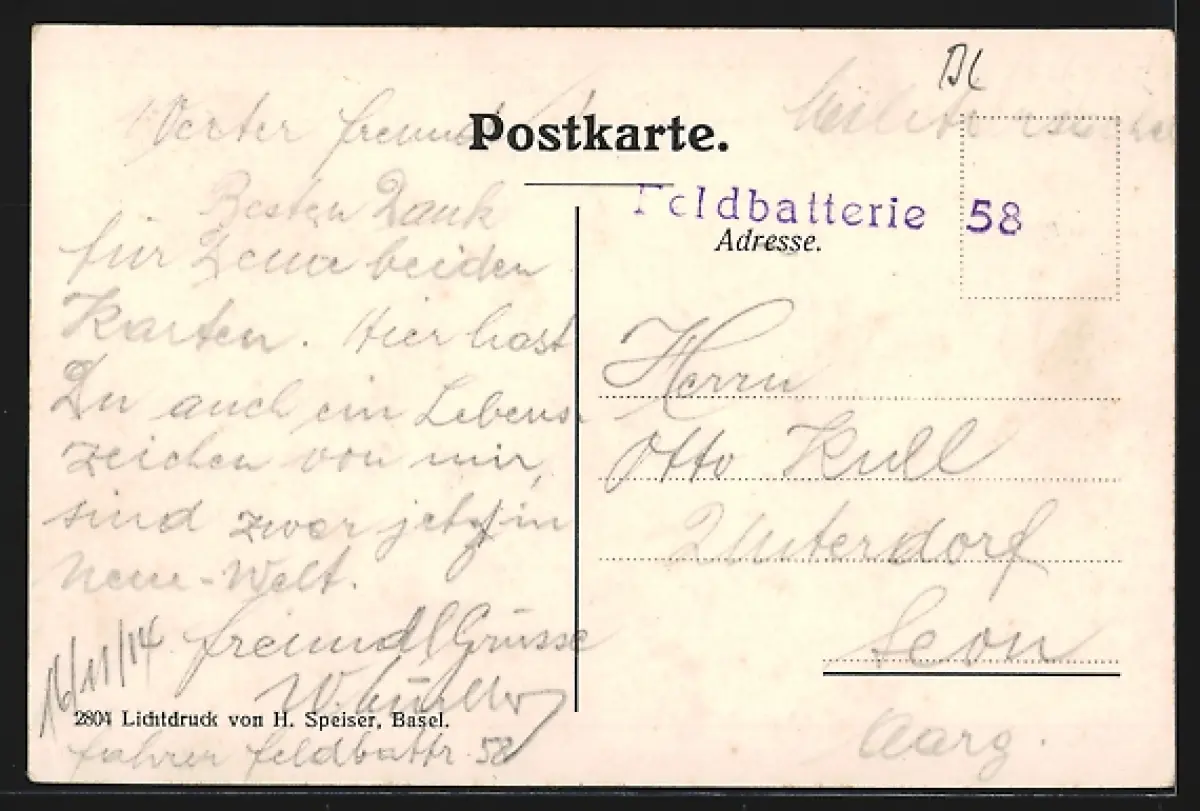 Werter Freund
Postkarte.
Besten Dank
für Deine beiden
Karten. Hier hast
Du auch ein Lebens-
zeichen von mir,
sind zwar jetzt in
Neue-Welt.
freundl Grüsse
W.
16/11/14
2804 Lichtdruck von H. Speiser, Basel.
Fahrer Feldbattr. 58
Feldbatterie 58
Adresse.
Herrn
Otto Kull
Unterdorf
Seon
Aarg.